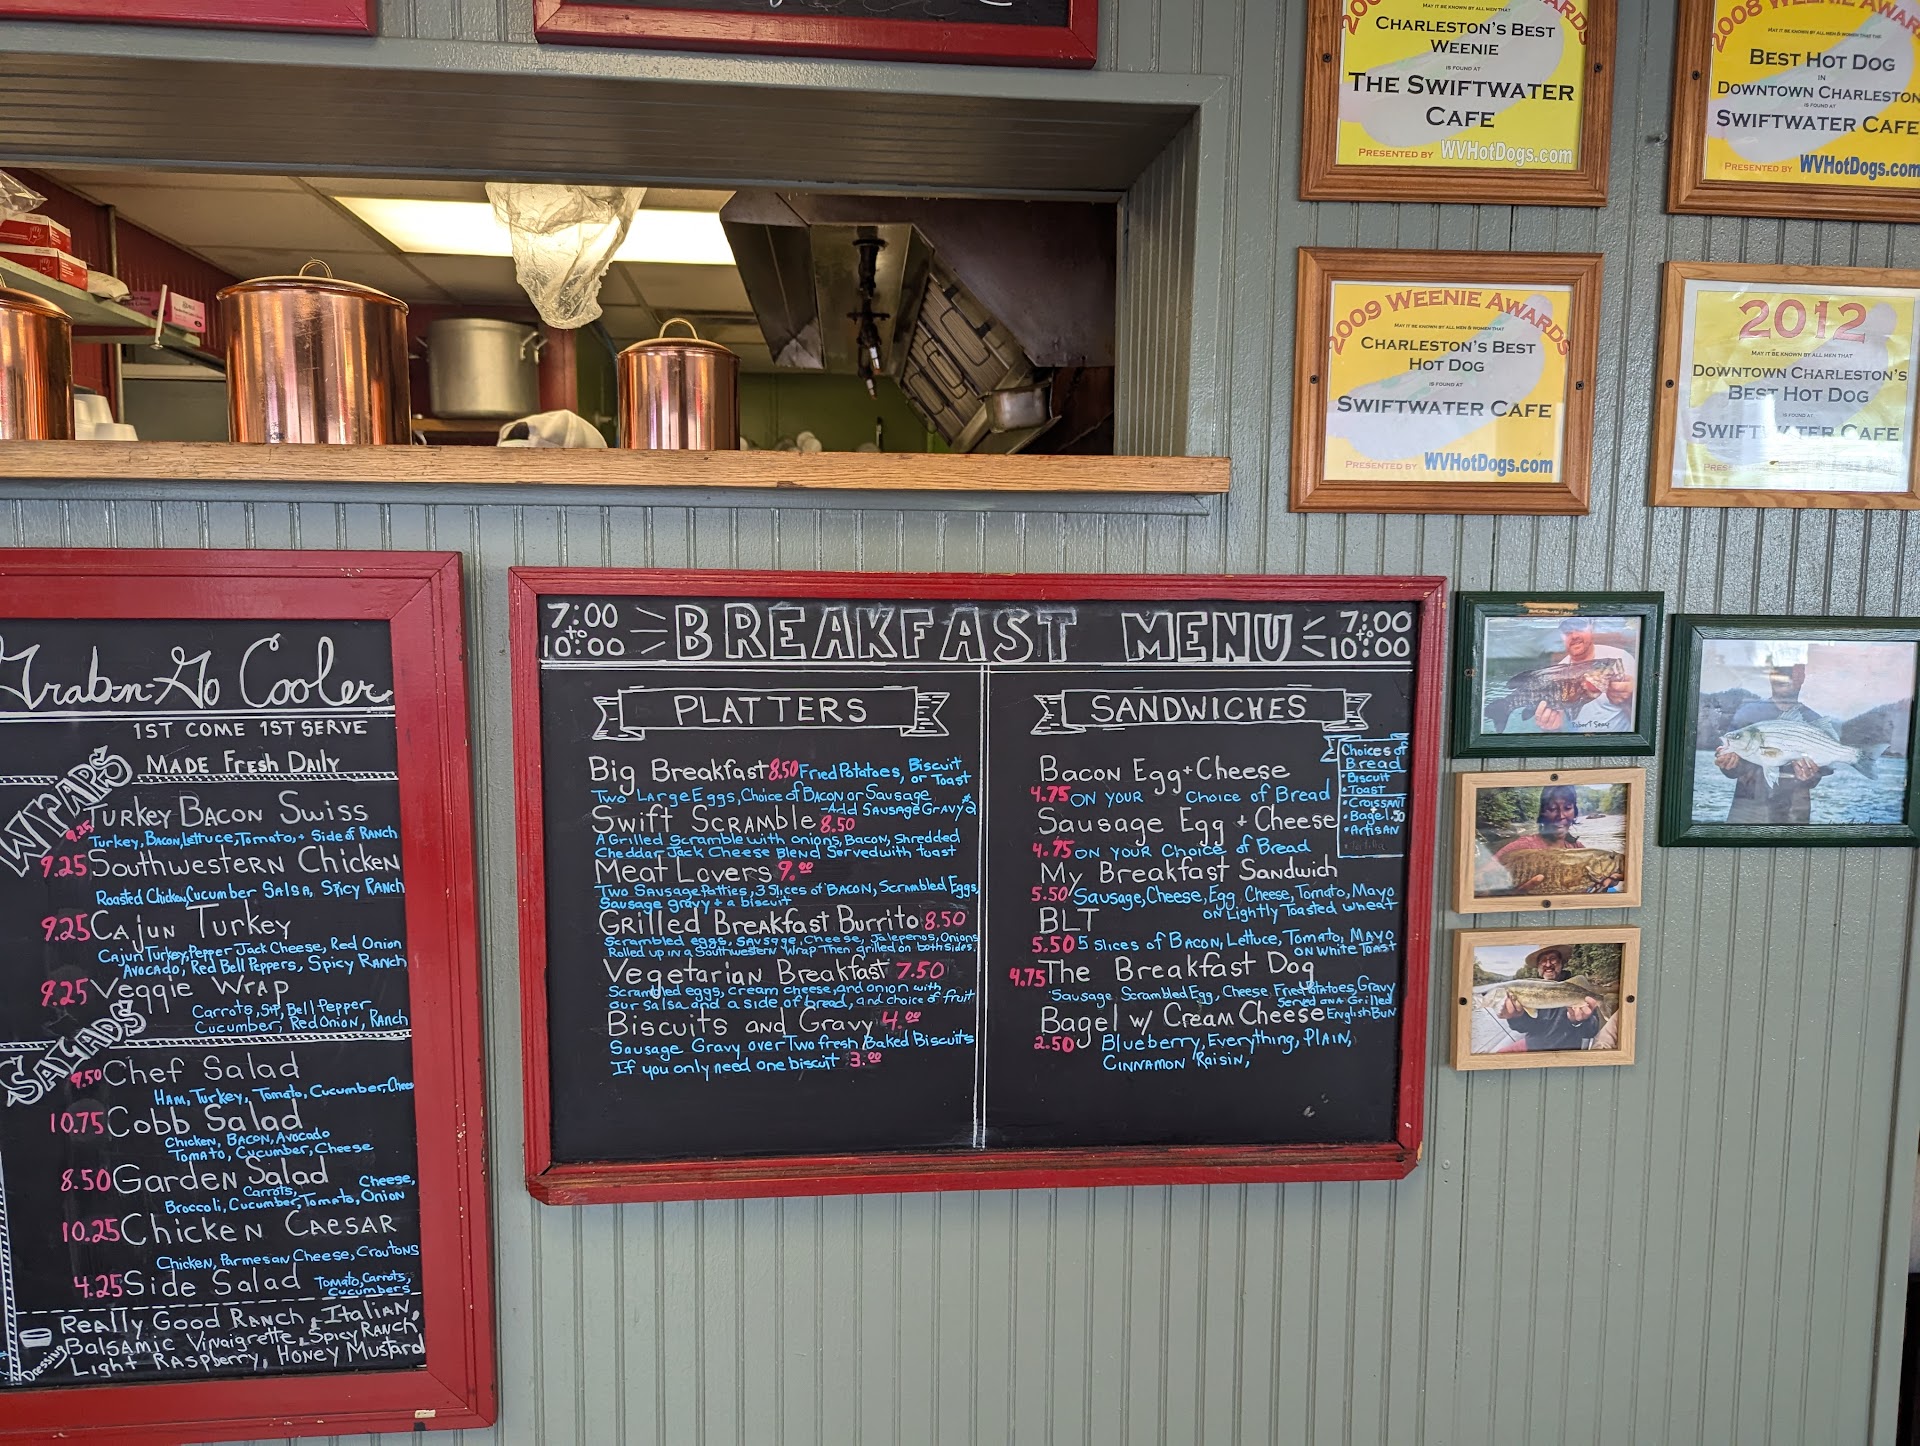 CHARLESTON'S BEST
WEENIE
IS FOUND AT
THE SWIFTWATER
CAFE
PRESENTED BY WVHotDogs.com
2008 WEENIE AWARDS
MAY IT BE KNOWN BY ALL MEN & WOMEN THAT THE
BEST HOT DOG
IN
DOWNTOWN CHARLESTON
IS FOUND AT
SWIFTWATER CAFE
PRESENTED BY WVHotDogs.com
2009 WEENIE AWARDS
MAY IT BE KNOWN BY ALL MEN & WOMEN THAT
CHARLESTON'S BEST
HOT DOG
IS FOUND AT
SWIFTWATER CAFE
PRESENTED BY WVHotDogs.com
2012
MAY IT BE KNOWN BY ALL MEN THAT
DOWNTOWN CHARLESTON'S
BEST HOT DOG
IS FOUND AT
SWIFTWATER CAFE
Grab-n-Go Cooler
1ST COME 1ST SERVE
MADE Fresh Daily
WRAPS
TURKEY BACON SWISS
9.25 Turkey, Bacon, Lettuce, Tomato, + Side of RANCH
9.25 SOUTHWESTERN CHICKEN
Roasted Chicken, Cucumber Salsa, Spicy RANCH
9.25 CAJUN TURKEY
Cajun Turkey, Pepper Jack Cheese, Red Onion
Avocado, Red Bell Peppers, Spicy RANCH
9.25 Veggie WRAP
Carrots, Bell Pepper
Cucumber, Red Onion, RANCH
SALADS
9.50 Chef Salad
HAM, Turkey, Tomato, Cucumber, Cheese
10.75 Cobb Salad
Chicken, BACON, Avocado
Tomato, Cucumber, Cheese
8.50 Garden Salad
Cheese,
Carrots,
Broccoli, Cucumber, Tomato, Onion
10.25 Chicken CAESAR
Chicken, Parmesan Cheese, Croutons
4.25 Side Salad Tomato, Carrots,
Cucumbers
Dressing
Really Good RANCH, Italian,
Balsamic Vinaigrette, Spicy RANCH,
Light Raspberry, Honey Mustard
7:00 to 10:00 BREAKFAST MENU 7:00 to 10:00
PLATTERS
Big Breakfast 8.50 Fried Potatoes, Biscuit or Toast
Two Large Eggs, Choice of BACON or Sausage
-Add Sausage Gravy 2
Swift SCRAMBLE 8.50
A Grilled Scramble with onions, Bacon, Shredded
Cheddar Jack Cheese Blend Served with toast
Meat Lovers 9.00
Two Sausage Patties, 3 Slices of BACON, Scrambled Eggs,
Sausage gravy + a biscuit
Grilled Breakfast Burrito 8.50
Scrambled eggs, Sausage, Cheese, Jalepenos, Onions
Rolled up in a Southwestern Wrap Then grilled on both Sides.
Vegetarian Breakfast 7.50
Scrambled eggs, cream cheese, and onion with
our Salsa and a side of bread, and choice of fruit
Biscuits and Gravy 4.00
Sausage Gravy over Two fresh Baked Biscuits
If you only need one biscuit 3.00
SANDWICHES
Choices of
Bread
• Biscuit
• Toast
• Croissant
• Bagel .50
• Artisan
Bacon Egg + Cheese
4.75 ON YOUR Choice of Bread
Sausage Egg + Cheese
4.75 ON YOUR Choice of Bread
My Breakfast Sandwich
5.50 Sausage, Cheese, Egg Cheese, Tomato, Mayo
ON Lightly Toasted wheat
BLT
5.50 5 Slices of BACON, Lettuce, Tomato, MAYO
ON White Toast
4.75 The Breakfast Dog
Sausage Scrambled Egg, Cheese Fried Potatoes, Gravy
Served on A Grilled
English Bun
Bagel w/ Cream Cheese
2.50 Blueberry, Everything, PLAIN,
CINNAMON Raisin,